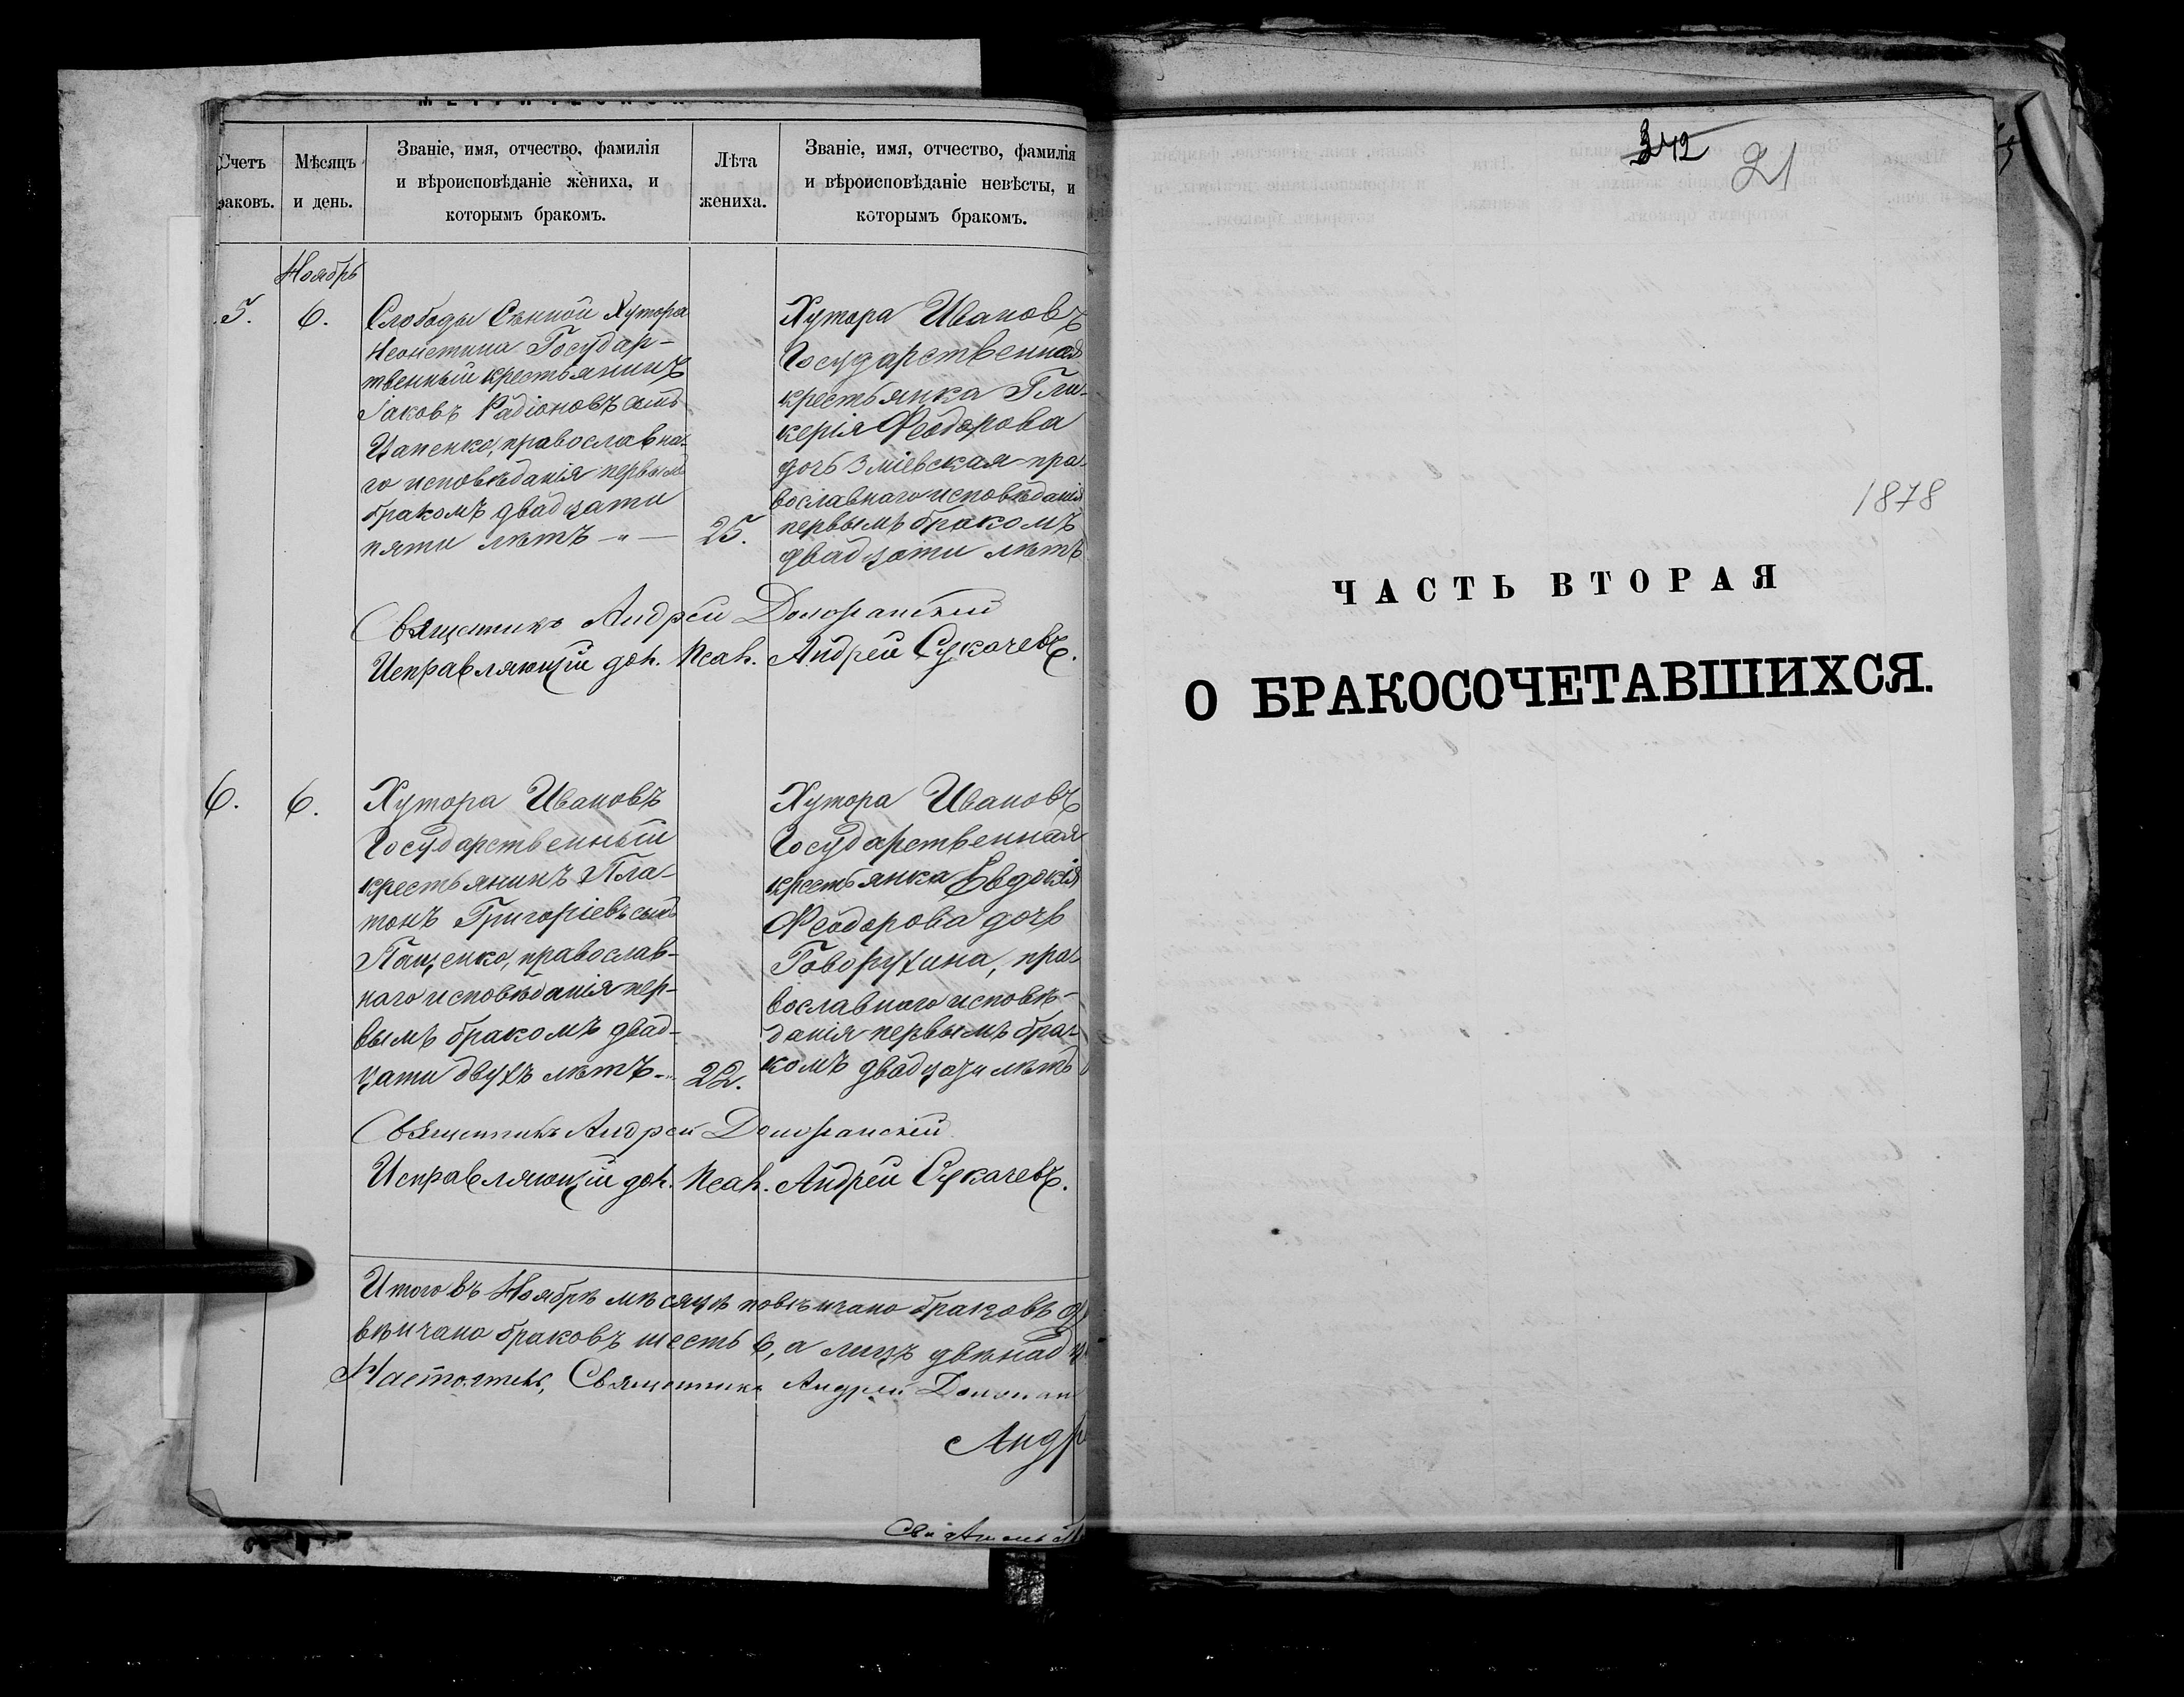 Счетъ
раковъ.
Мѣсяцъ
и день.
Званіе, имя, отчество, фамилія
и вѣроисповѣданіе жениха, и
которымъ бракомъ.
Лѣта
жениха.
Званіе, имя, отчество, фамилія
и вѣроисповѣданіе невѣсты, и
которымъ бракомъ.
Ноябрь
5.
6.
Слободы Сѣнной Хутора
Государ-
твенный крестьянинъ
Іаковъ Радіоновъ сынъ
Цапенко, православна-
го исповѣданія первымъ
бракомъ двадцати
пяти лѣтъ -"-
25.
Хутора Ивановъ
Государственная
крестьянка Гли-
керія Ѳеодорова
дочь Зміевская пра-
вославнаго исповѣданія
первымъ бракомъ
двадцати лѣтъ
Священникъ Андрей
Исправляющій дол. Псал. Андрей Сукачевъ.
6.
6.
Хутора Ивановъ
Государственный
крестьянинъ Пла-
тонъ Григоріевъ сынъ
Пащенко, православ-
наго исповѣданія пер-
вымъ бракомъ двад-
цати двухъ лѣтъ -"-
22.
Хутора Ивановъ
Государственная
крестьянка Евдокія
Ѳеодорова дочь
Говорухина, пра-
вославнаго исповѣ-
данія первымъ бра-
комъ двадцати лѣтъ
Священникъ Андрей
Исправляющій дол. Псал. Андрей Сукачевъ.
Итого въ Ноябрѣ мѣсяцѣ повѣнчано браковъ
вѣнчано браковъ шесть 6, а лицъ двѣнадц
Настоятель, Священникъ Андрей
Андр
342
21
1878
ЧАСТЬ ВТОРАЯ
О БРАКОСОЧЕТАВШИХСЯ.